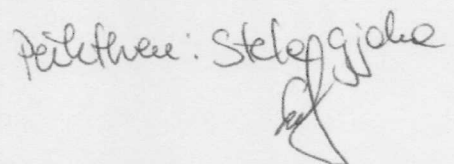 Përktheu: Stela Gjoka